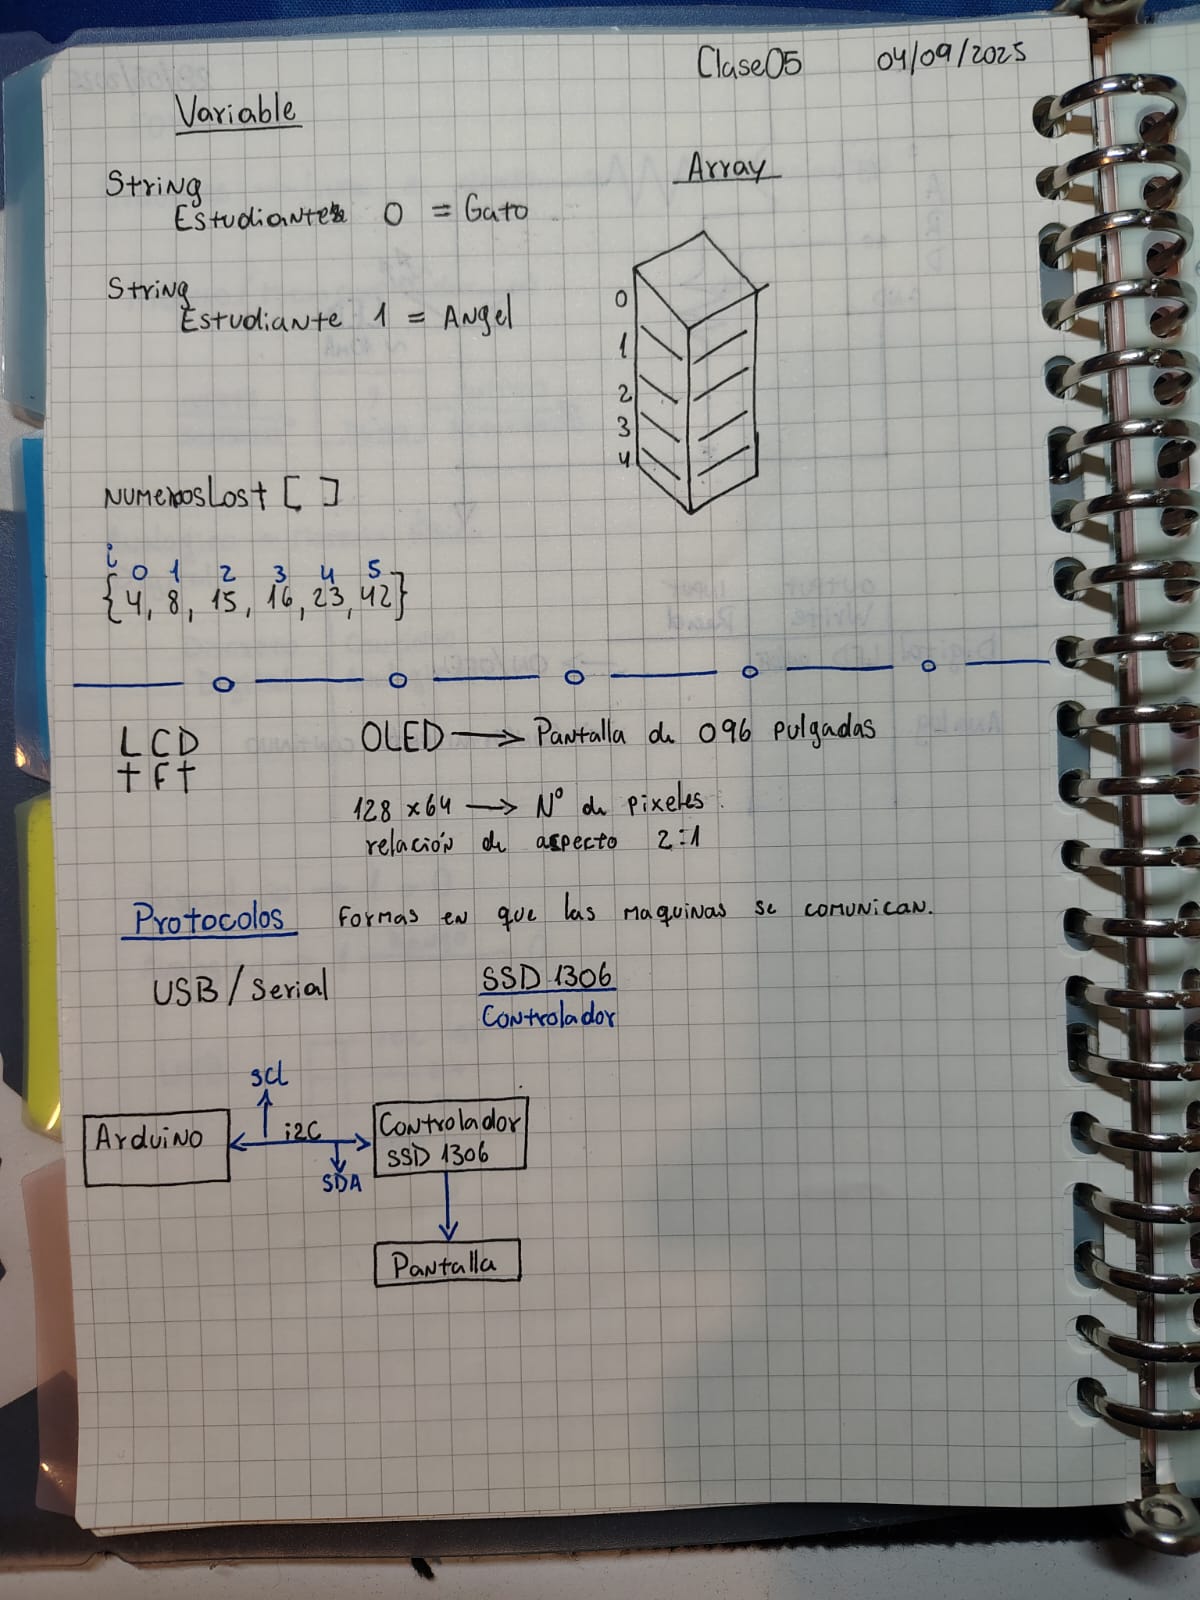 Clase05 04/09/2025
Variable
String
Estudiante 0 = Gato
String
Estudiante 1 = Angel
Array
0
1
2
3
4
NumerosLost [ ]
i 0 1 2 3 4 5
{4, 8, 15, 16, 23, 42}
LCD
TFT
OLED → Pantalla de 096 pulgadas
128 x 64 → Nº de pixeles
relación de aspecto 2:1
Protocolos Formas en que las maquinas se comunican.
USB / Serial
SSD 1306
Controlador
scl
Arduino
i2C
SDA
Controlador
SSD 1306
Pantalla